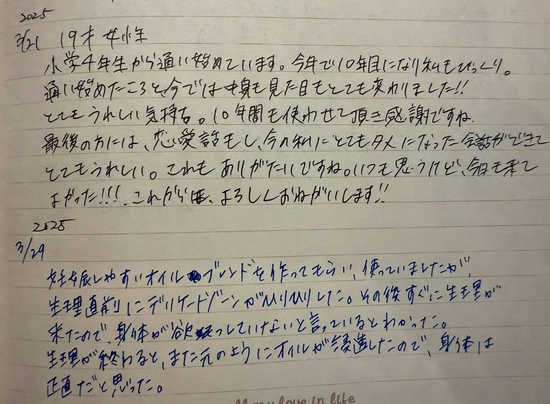 2025
3/21 19才 女性
小学4年生から通い始めています。今年で10年目になり私もびっくり。
通い始めたころと今では中身も見た目もとても変わりました!!
とてもうれしい気持ち。10年間も使わせて頂き感謝ですね
最後の方には、恋愛話もし、今の私にとてもタメになった会話ができて
とてもうれしい。これも ありがたいですね。いつも思うけど、今日も来て
よかった!!! これからも、よろしくおねがいします!!
2025
3/29
妊娠しやすいオイル ブレンドを作ってもらい、使っていましたが、
生理直前にデリケートゾーンがヒリヒリした。その後すぐに生理が
来たので、身体が欲っしていないと言っているとわかった。
生理が終わると、また元のようにオイルが浸透したので、身体は
正直だと思った。
my love in life